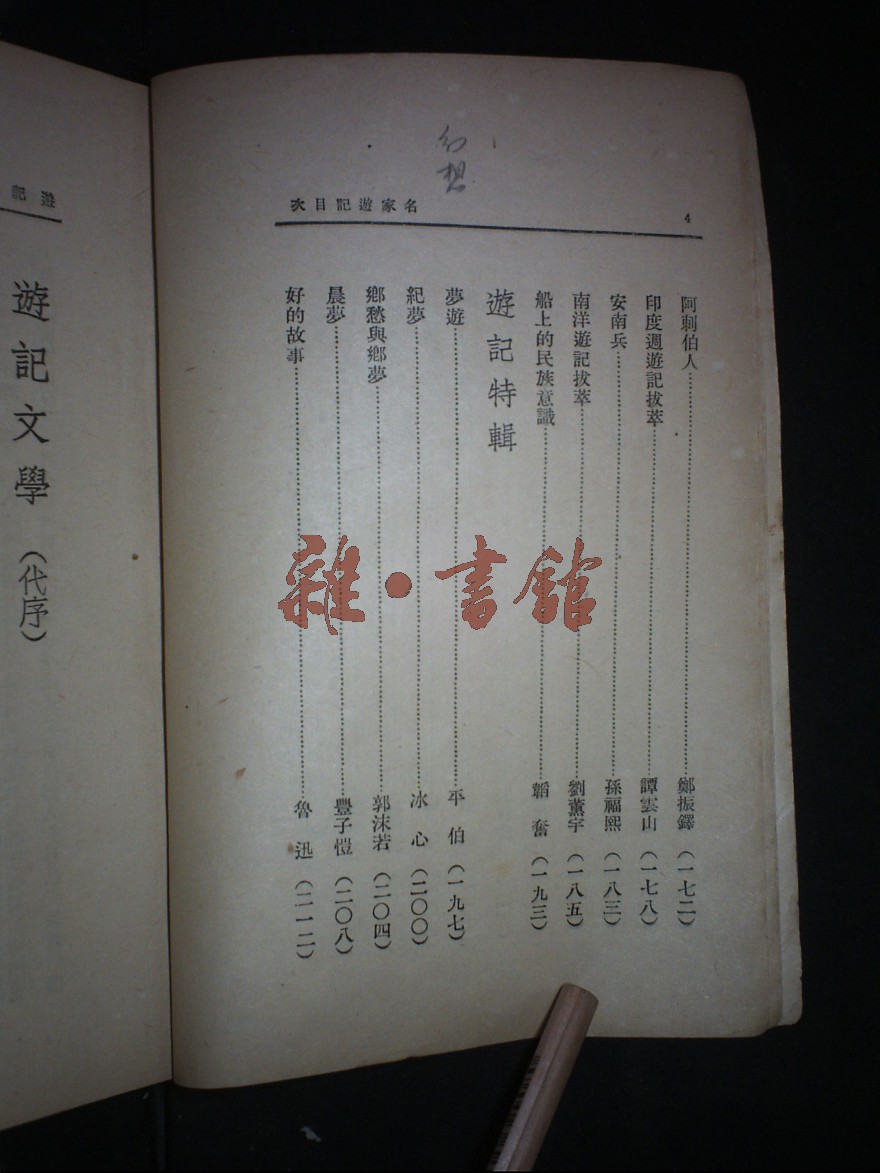 幻想
名家遊記目次
4
阿剌伯人……鄭振鐸(一七二)
印度週遊記拔萃……譚雲山(一七八)
安南兵……孫福熙(一八三)
南洋遊記拔萃……劉薰宇(一八五)
船上的民族意識……韜奮(一九三)
遊記特輯
夢遊……平伯(一九七)
紀夢……冰心(二〇〇)
鄉愁與鄉夢……郭沫若(二〇四)
晨夢……豐子愷(二〇八)
好的故事……魯迅(二一二)
遊記
遊記文學(代序)
雜·書館